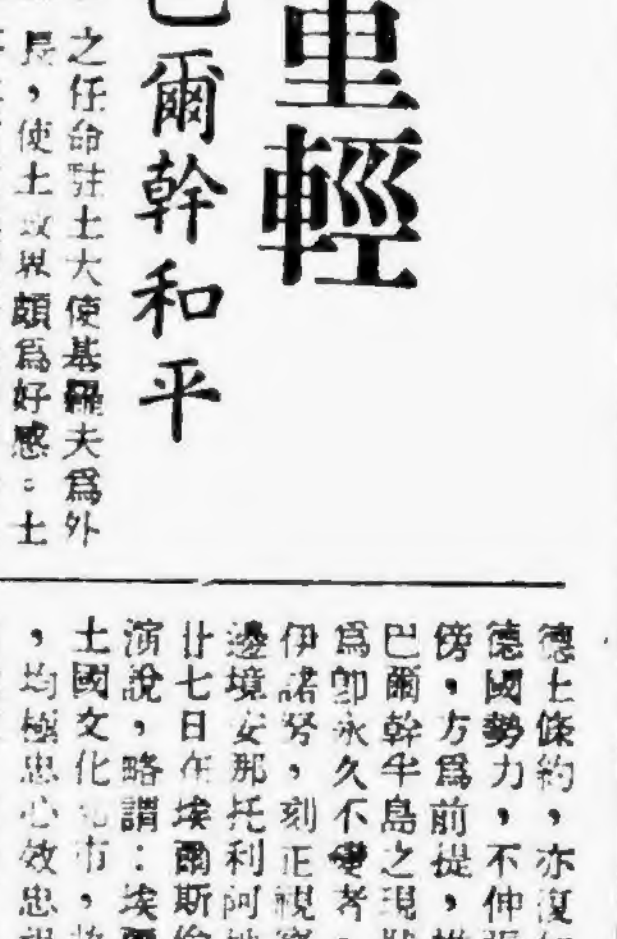 里輕
巴爾幹和平
之任命駐土大使基羅夫爲外
長，使土政界頗爲好感。土
德土條約，亦復
德國勢力，不伸張
傍，方爲前提，
巴爾幹半島之現狀
爲卽永久不變者，
伊諾努，刻正視察
邊境安那托利阿
廿七日在埃爾斯倫
演說，略謂：埃爾
土國文化市，
，均極忠心效忠